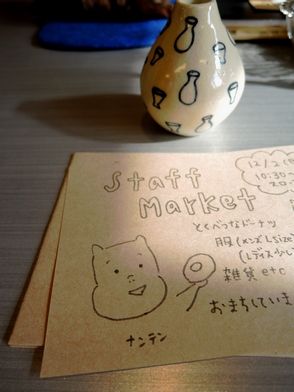 Staff
Market
12/2(
10:30~
20:
とくべつなドーナツ
服(メンズLsize
(レディス少し
雑貨 etc
おまちしていま
ナンテン